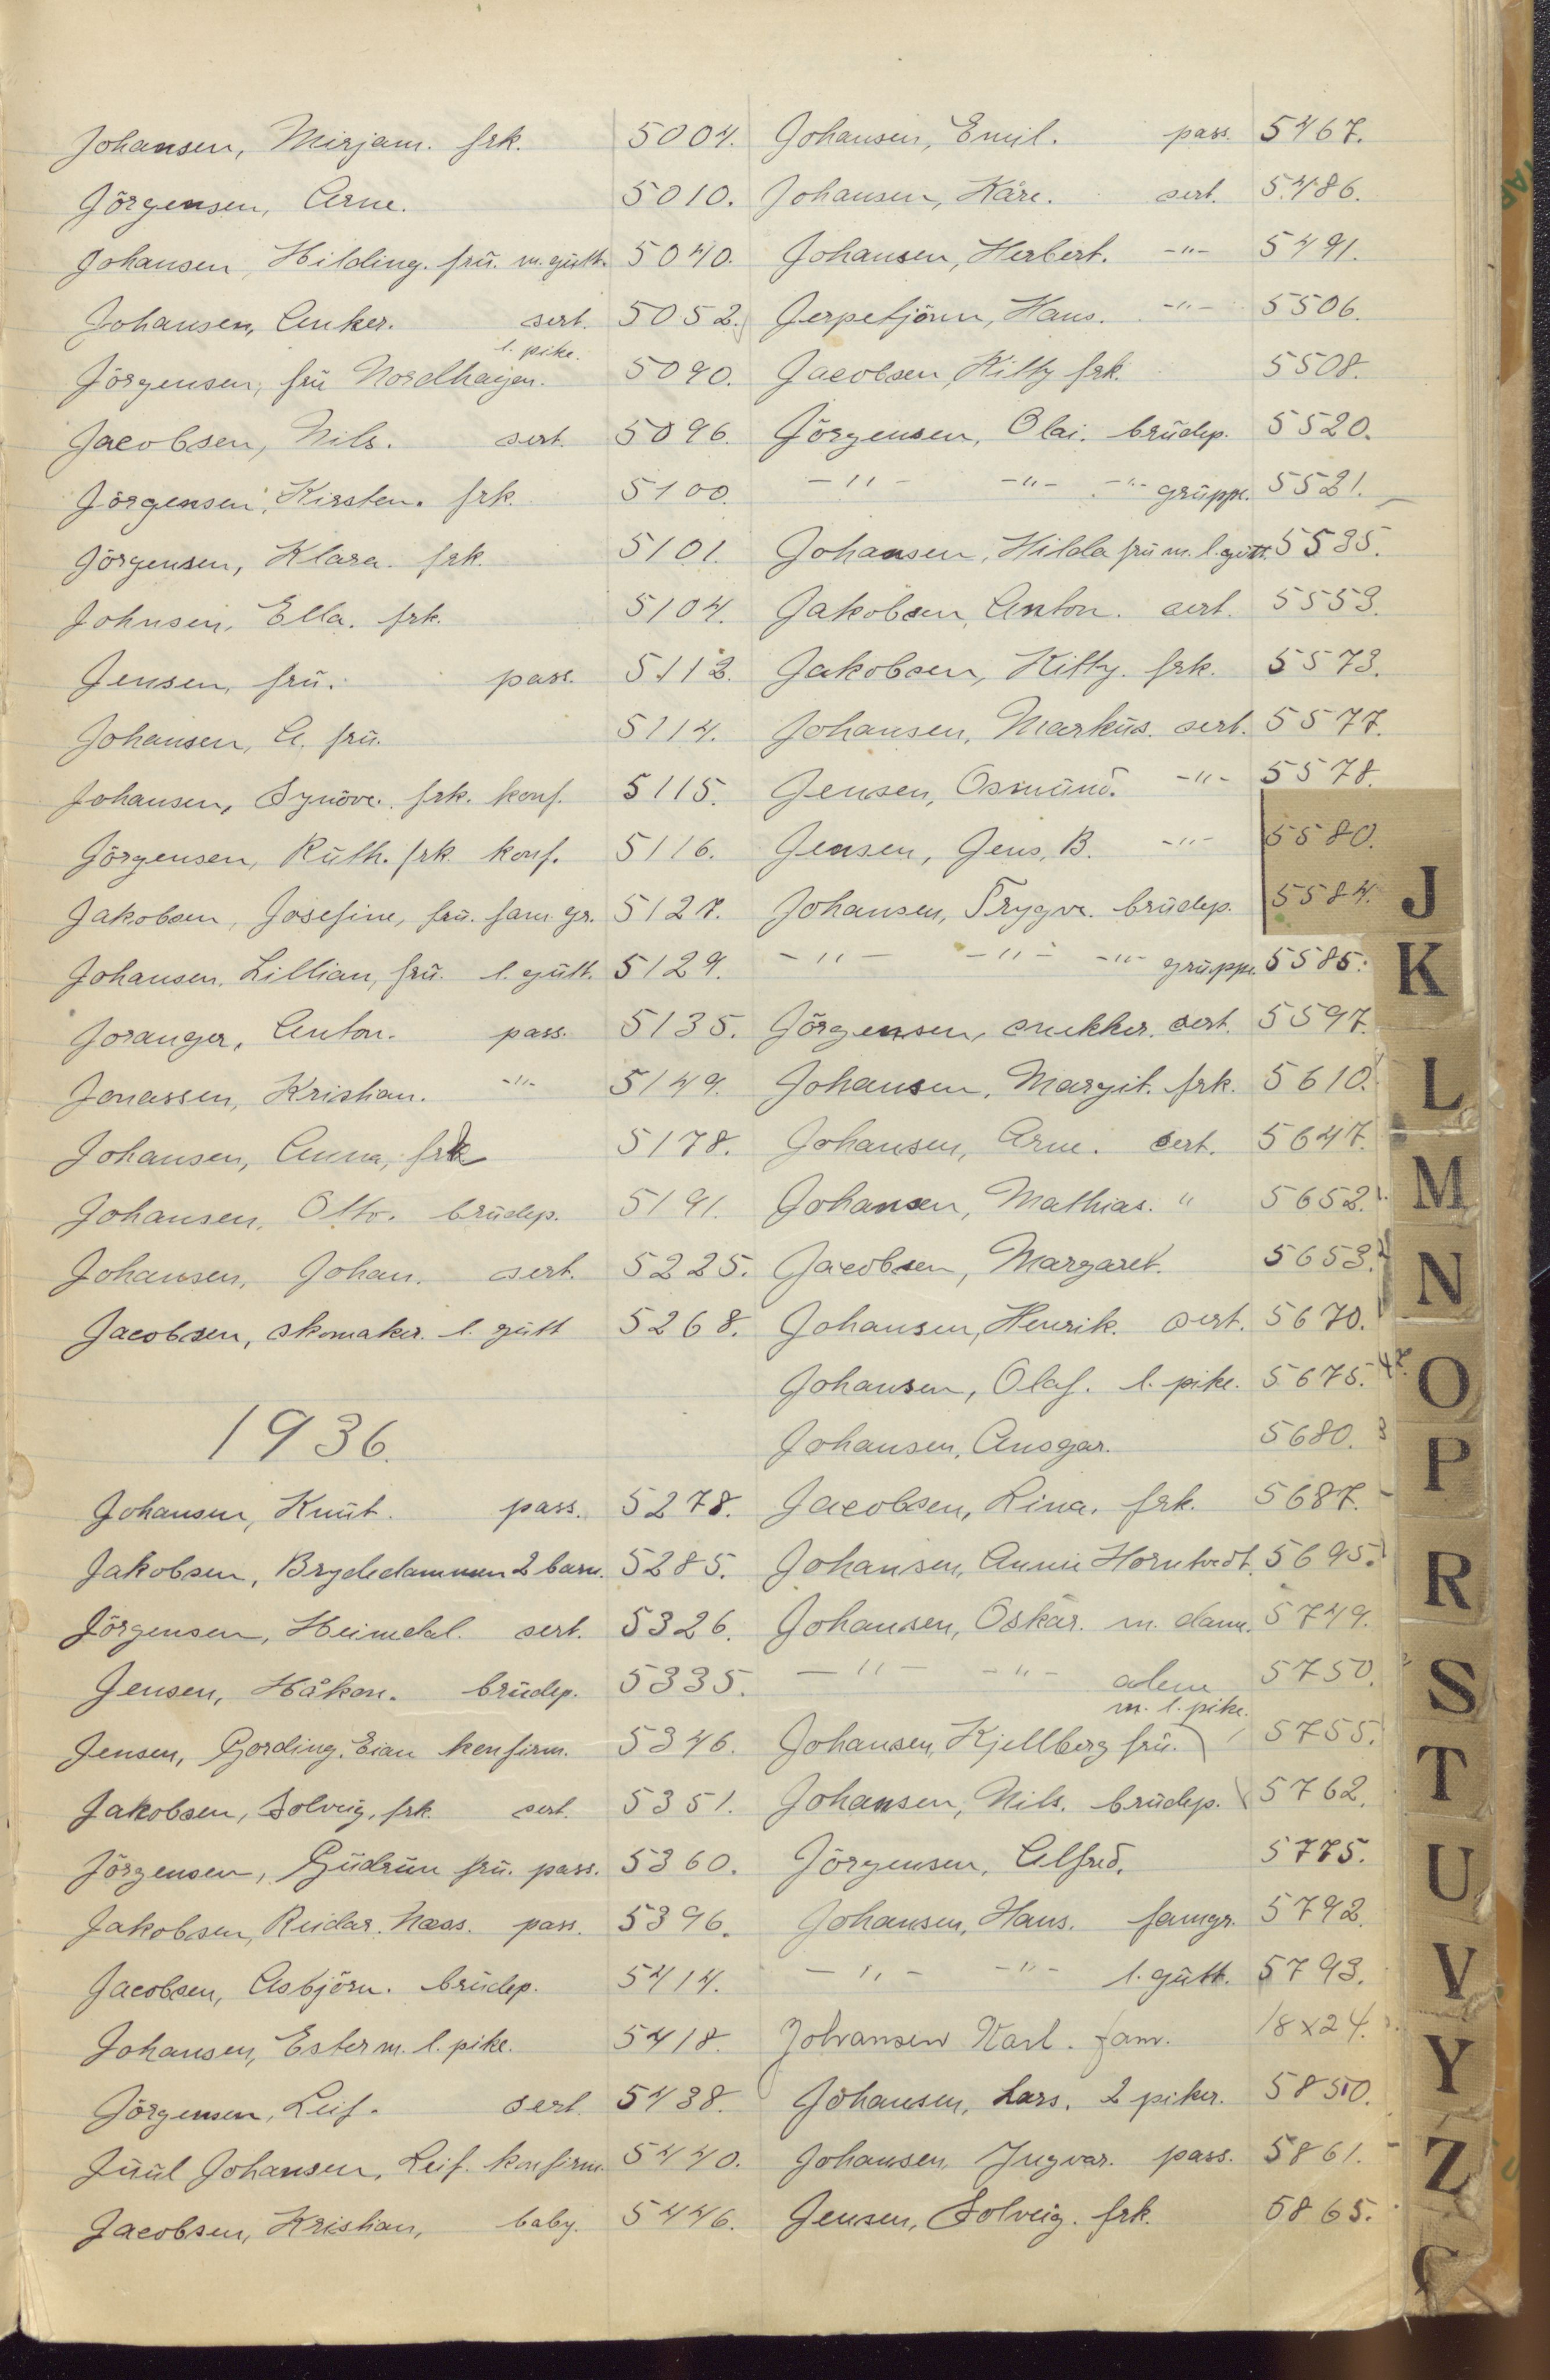 Johansen, Mirjam. frk. 5004.
Jörgensen, Arne. 5010.
Johansen, Hilding. frū. m. gūtt. 5040.
Johansen, Anker. sert. 5052.
l. pike.
Jörgensen, frū Nordhagen. 5090.
Jacobsen, Nils. sert. 5096.
Jörgensen, Kirsten. frk. 5100.
Jörgensen, Klara. frk. 5101.
Johnsen, Ella. frk. 5104.
Jensen, frū. pass. 5112.
Johansen, A. frū. 5114.
Johansen, Synöve. frk. konf. 5115.
Jörgensen, Rūth. frk. konf. 5116.
Jakobsen, Josefine, frū. fam. gr. 5127.
Johansen, Lillian, frū. l. gūtt. 5129.
Joranger, Anton. pass. 5135.
Jonassen, Kristian. -"- 5149.
Johansen, Anna, frk 5178.
Johansen, Otto. brūdep. 5191.
Johansen, Johan. sert. 5225.
Jacobsen, skomaker. l. gūtt 5268.
1936.
Johansen, Knūt. pass. 5278.
Jakobsen, Brydedammen 2 barn. 5285.
Jörgensen, Heimdal. sert. 5326.
Jensen, Håkon. brūdep. 5335.
Jensen, Gording. Eian konfirm. 5346.
Jakobsen, Solveig, frk. sert. 5351.
Jörgensen, Gūdrūn frū. pass. 5360.
Jakobsen, Reidar. Næss. pass. 5396.
Jacobsen, Asbjörn. brūdep. 5414.
Johansen, Ester m. l. pike. 5418.
Jörgensen, Leif. sert. 5438.
Jūūl Johansen, Leif. konfirm. 5440.
Jacobsen, Kristian, baby. 5446.
Johansen, Emil. pass. 5467.
Johansen, Kåre. sert. 5486.
Johansen, Herbert. -"- 5491.
Jerpetjönn, Hans. -"- 5506.
Jacobsen, Kitty frk. 5508.
Jörgensen, Olai. brūdep. 5520.
-"- -"- -"- grūppe. 5521.
Johansen, Hilda frū m. l. gūtt. 5535.
Jakobsen, Anton. sert. 5553.
Jakobsen, Kitty. frk. 5573.
Johansen, Markūs. sert. 5577.
Jensen, Osmūnd. -"- 5578.
Jensen, Jens, B. -"- 5580.
Johansen, Trygve. brūdep. 5584.
-"- -"- -"- grūppe. 5585.
Jörgensen, snekker. sert. 5597.
Johansen, Margit. frk. 5610.
Johansen, Arne. sert. 5647.
Johansen, Mathias. " 5652.
Jacobsen, Margaret. 5653.
Johansen, Henrik. sert. 5670.
Johansen, Olaf. l. pike. 5675.
Johansen, Ansgar. 5680.
Jacobsen, Lina. frk. 5687.
Johansen, Annie Horntvedt. 5695.
Johansen, Oskar. m. dame. 5749.
-"- -"- alene 5750.
m. l. pike.
Johansen, Kjellberg frū. 5755.
Johansen, Nils. brūdep. 5762.
Jörgensen, Alfred. 5775.
Johansen, Hans. famgr. 5792.
-"- -"- l. gūtt. 5793.
Johansen Karl. fam. 18x24.
Johansen, Lars. 2 piker. 5850.
Johansen, Ingvar. pass. 5861.
Jensen, Solveig. frk. 5865.
J
K
L
M
N
O
P
R
S
T
U
V
Y
Z